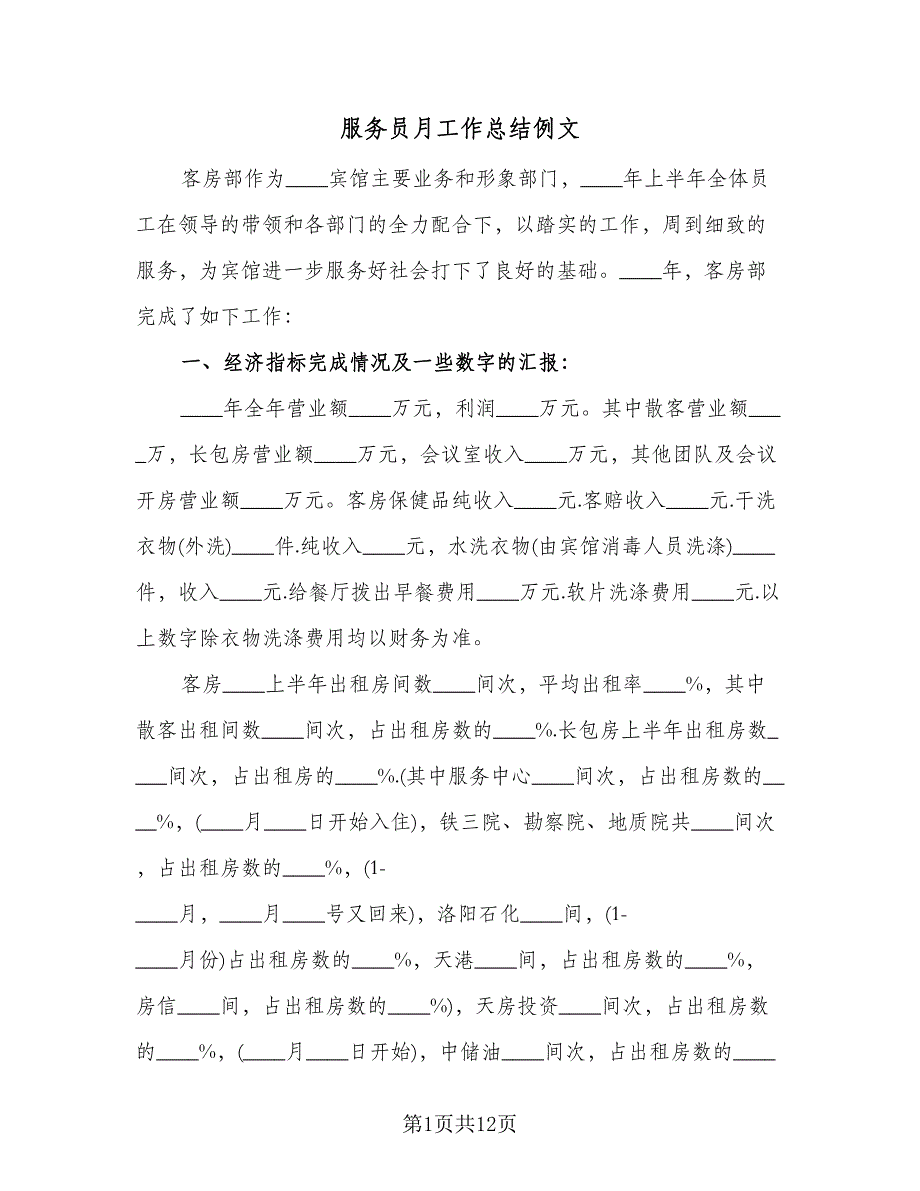 服务员月工作总结例文
客房部作为____宾馆主要业务和形象部门，____年上半年全体员
工在领导的带领和各部门的全力配合下，以踏实的工作，周到细致的
服务，为宾馆进一步服务好社会打下了良好的基础。____年，客房部
完成了如下工作：
一、经济指标完成情况及一些数字的汇报：
____年全年营业额____万元，利润____万元。其中散客营业额___
_万，长包房营业额____万元，会议室收入____万元，其他团队及会议
开房营业额____万元。客房保健品纯收入____元.客赔收入____元.干洗
衣物(外洗)____件.纯收入____元，水洗衣物(由宾馆消毒人员洗涤)____
件，收入____元.给餐厅拨出早餐费用____万元.软片洗涤费用____元.以
上数字除衣物洗涤费用均以财务为准。
客房____上半年出租房间数____间次，平均出租率____%，其中
散客出租间数____间次，占出租房数的____%.长包房上半年出租房数_
___间次，占出租房的____%.(其中服务中心____间次，占出租房数的__
__%，(____月____日开始入住)，铁三院、勘察院、地质院共____间次
，占出租房数的____%，(1-
____月，____月____号又回来)，洛阳石化____间，(1-
____月份)占出租房数的____%，天港____间，占出租房数的____%，
房信____间，占出租房数的____%)，天房投资____间次，占出租房数
的____%，(____月____日开始)，中储油____间次，占出租房数的____
第1页共12页